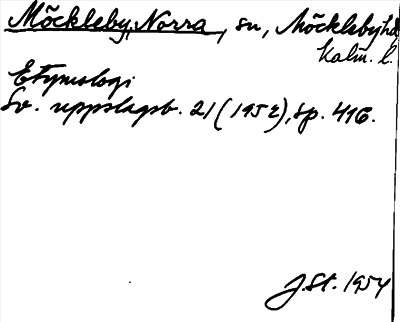 Möckleby, Norra, sn, Möckleby hd
Kalm. l.
Etymologi
Sv. uppslagsb. 21 (1952), sp. 416.
J. St. 1954